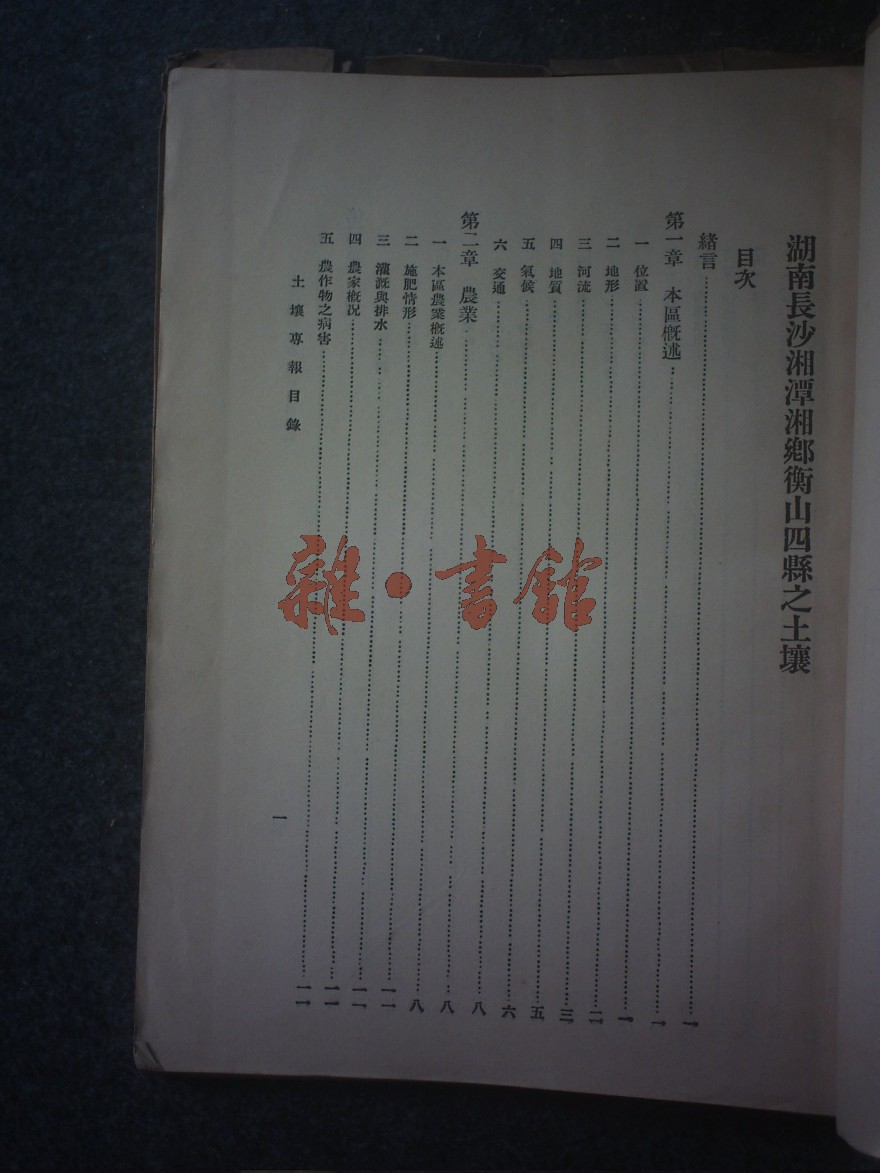 湖南長沙湘潭湘鄉衡山四縣之土壤
目次
緒言
第一章 本區概述
一 位置
二 地形 二
三 河流 三
四 地質 五
五 氣候 六
六 交通 八
第二章 農業 八
一 本區農業概述 八
二 施肥情形
三 灌溉與排水
四 農家概況
五 農作物之病害
土壤專報目錄
一
雜·書館